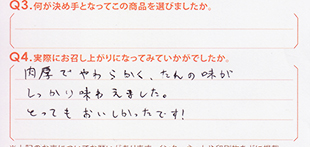 Q3.何が決め手となってこの商品を選びましたか。
Q4.実際にお召し上がりになってみていかがでしたか。
肉厚でやわらかく、たんの味が
しっかり味わえました。
とってもおいしかったです!